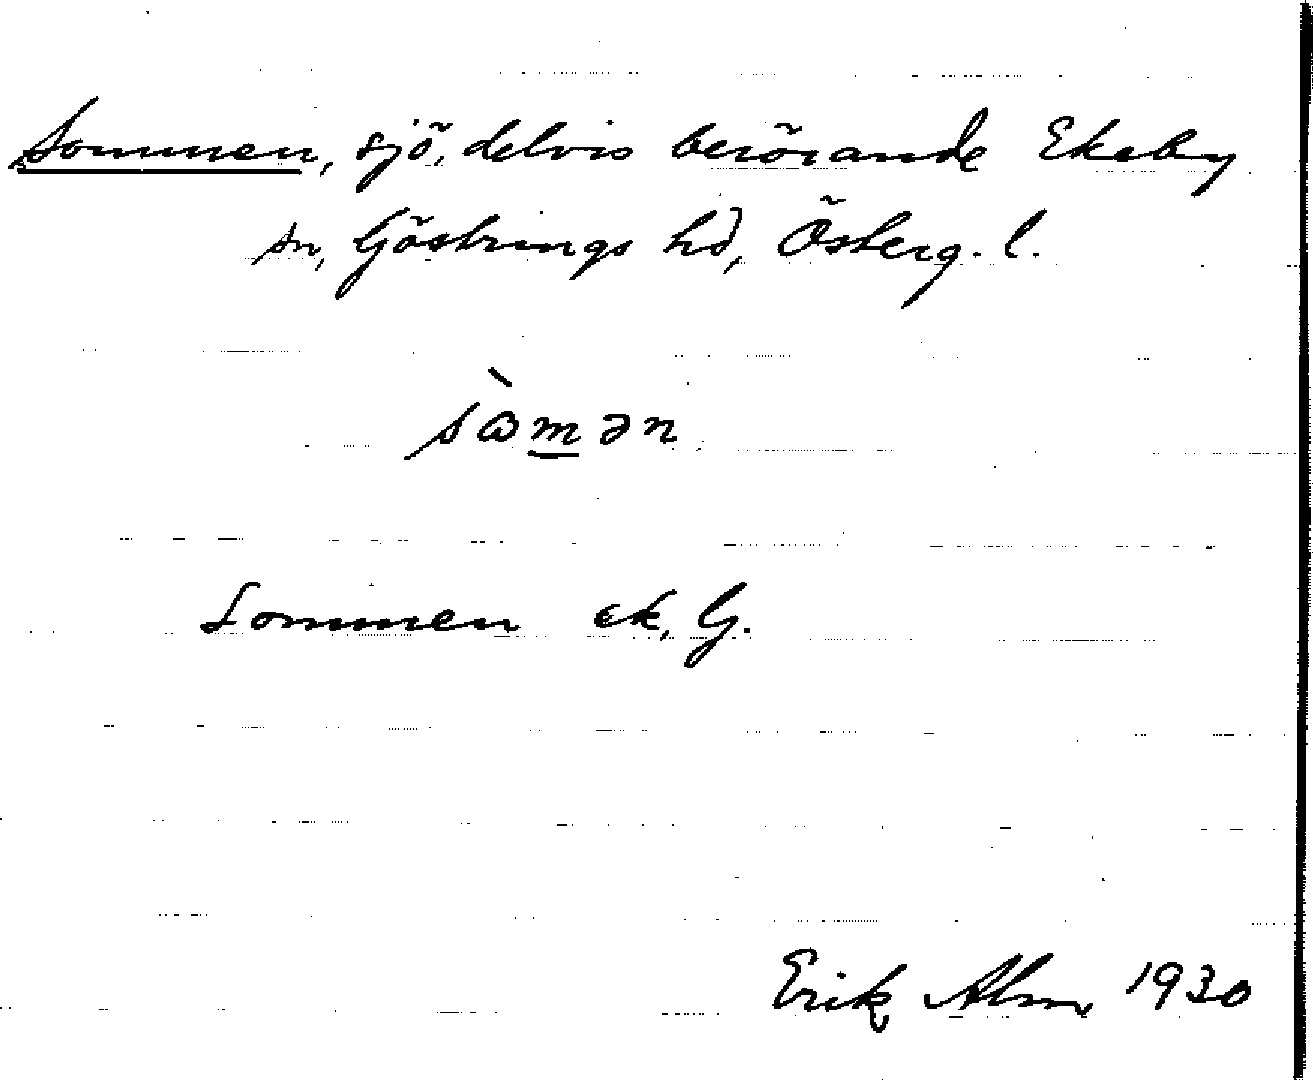 Sommen, sjö, delvis berörande Ekeby
sn, Göstrings hd, Österg. l.
sò̀mən
Sommen ek, G.
Erik Alm 1930